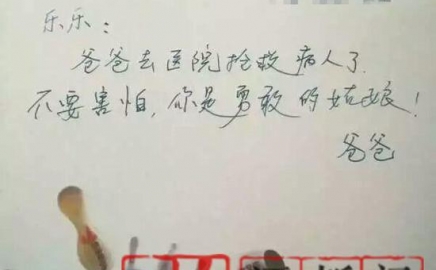 乐乐：
爸爸去医院抢救病人了.
不要害怕,你是勇敢的姑娘!
爸爸